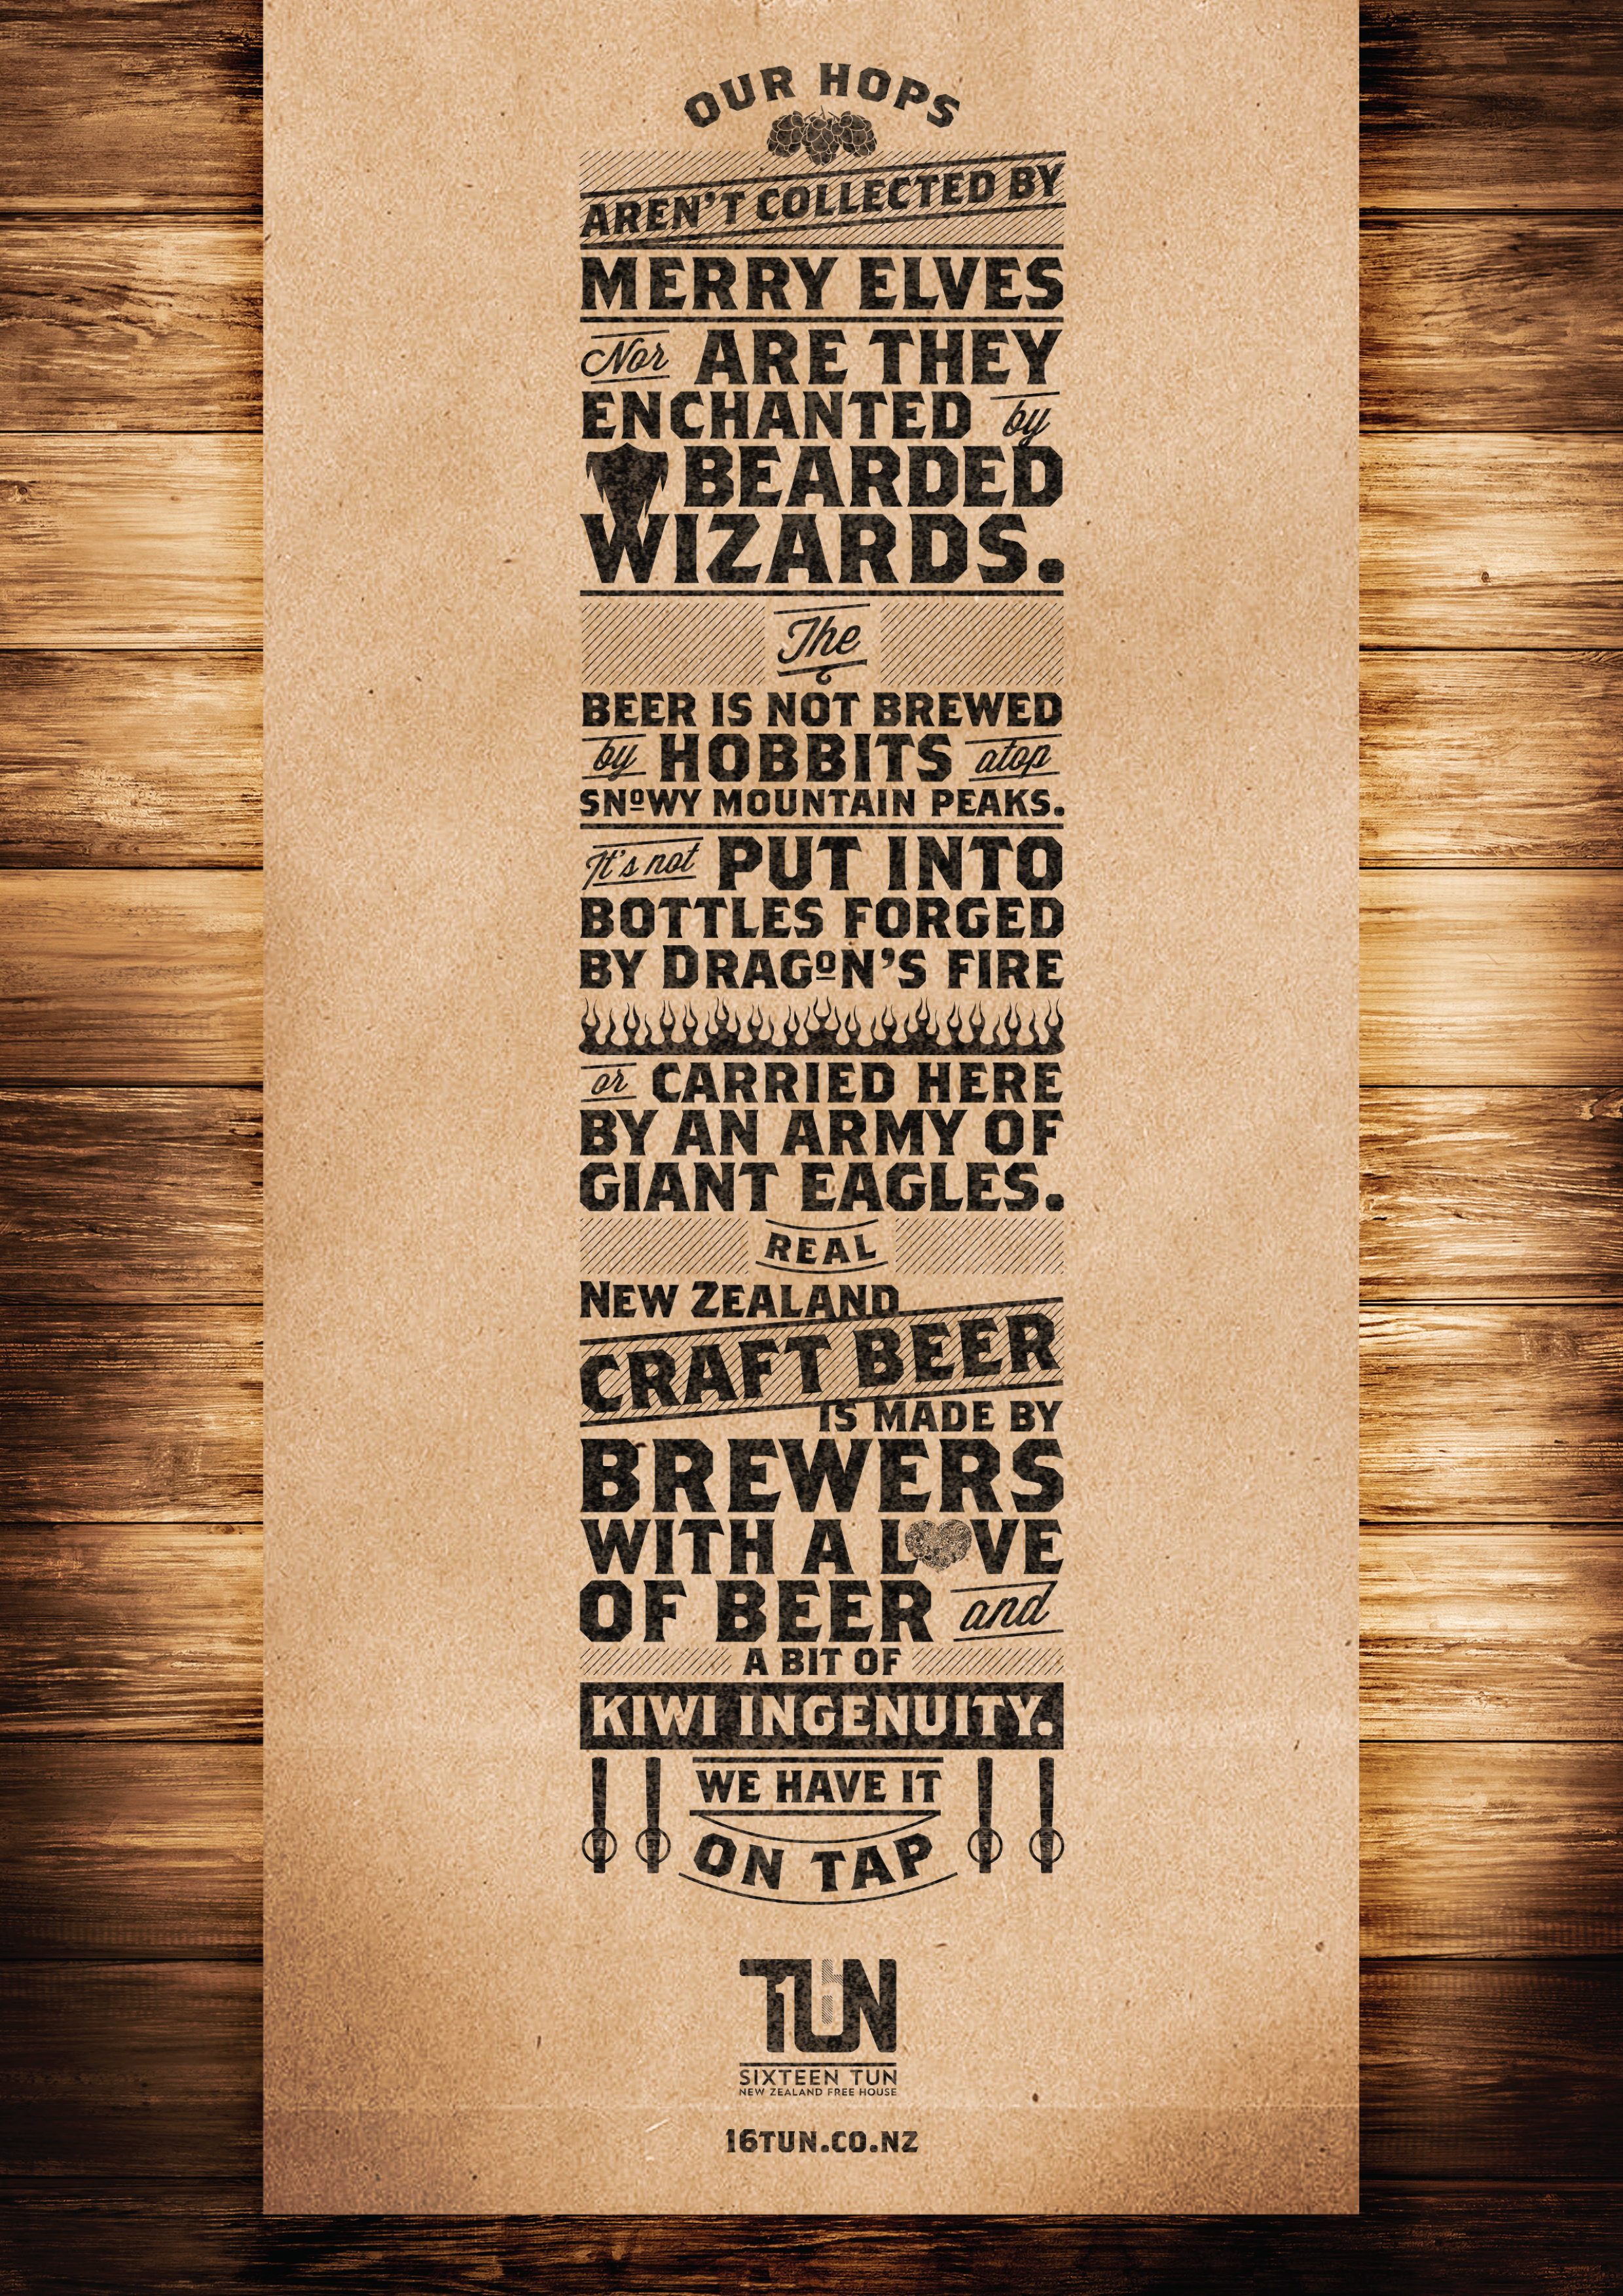 OUR HOPS
AREN'T COLLECTED BY
MERRY ELVES
Nor ARE THEY
ENCHANTED by
BEARDED
WIZARDS.
The
BEER IS NOT BREWED
by HOBBITS atop
SNOWY MOUNTAIN PEAKS.
It's not PUT INTO
BOTTLES FORGED
BY DRAGON'S FIRE
or CARRIED HERE
BY AN ARMY OF
GIANT EAGLES.
REAL
NEW ZEALAND
CRAFT BEER
IS MADE BY
BREWERS
WITH A LOVE
OF BEER and
A BIT OF
KIWI INGENUITY.
WE HAVE IT
ON TAP
TUN
SIXTEEN TUN
NEW ZEALAND FREE HOUSE
16TUN.CO.NZ